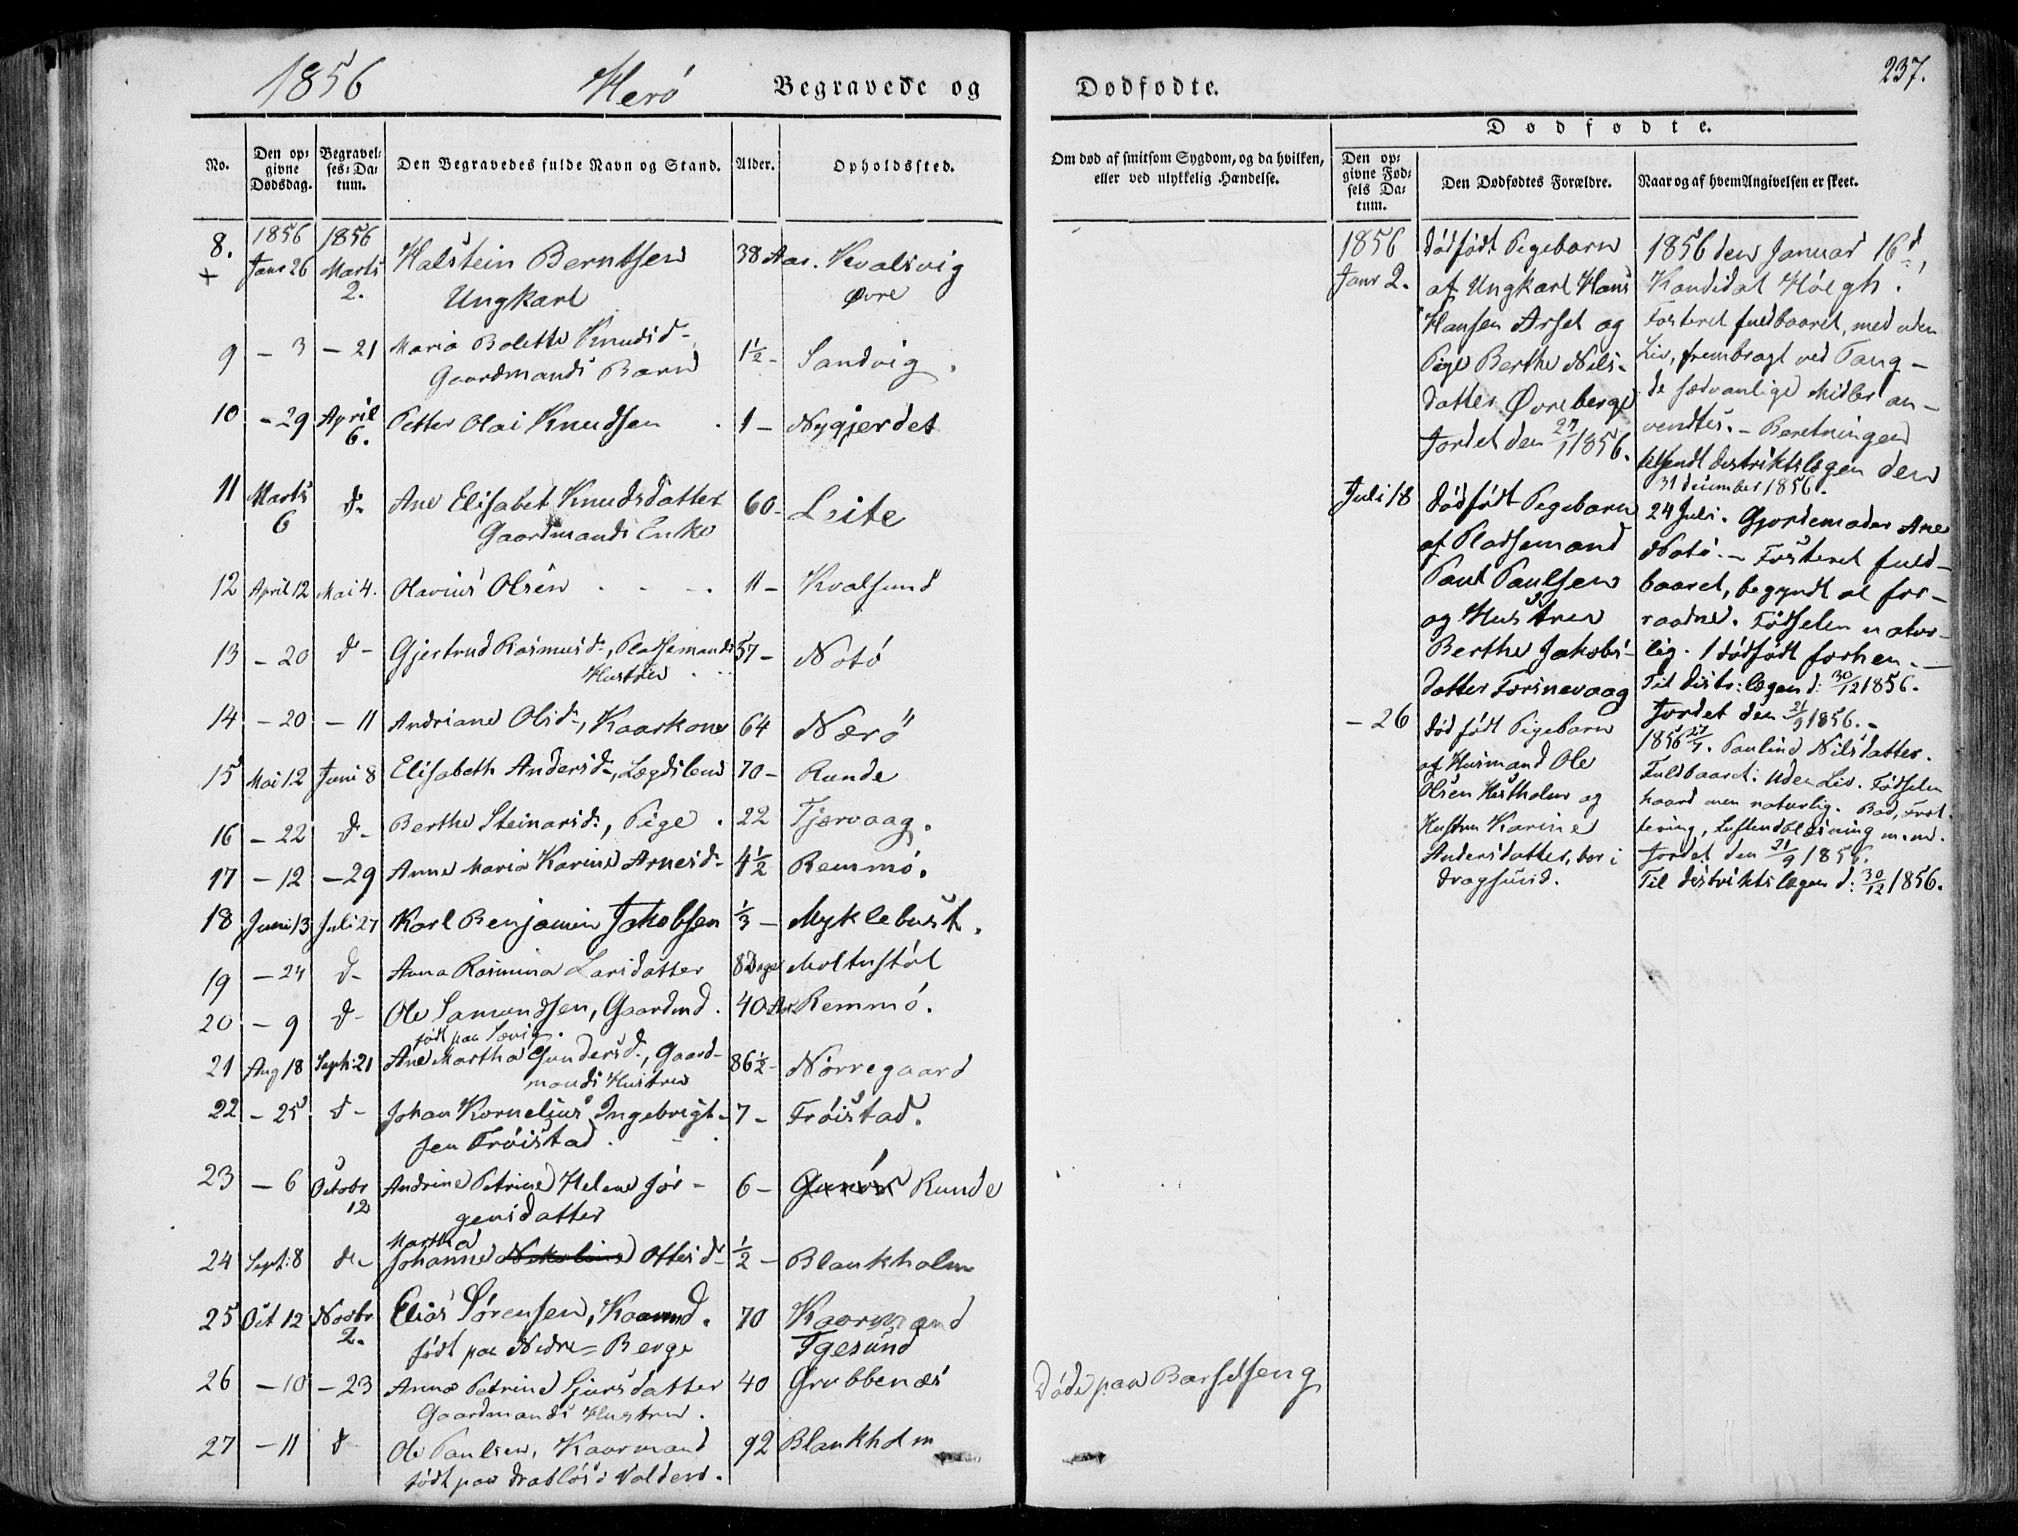 1856 Herö Begravede og
Dødfødte. 237.
No.
Den opgivne Dødsdag.
Begravelses-Datum.
Den Begravedes fulde Navn og Stand.
Alder.
Opholdssted.
Om død af smitsom Sygdom, og da hvilken,
eller ved ulykkelig Hændelse.
Dødfødte.
Den opgivne Fødsels Datum.
Den Dødfødtes Forældre.
Naar og af hvem Angivelsen er skeet.
1856 1856
8. Janr 26 Marts 2. Halstein Berntsen 38 Aar. Kvalsvig
+ Ungkarl Øvre
9 - 3 - 21 Maria Bolette Knudsd. 1½ - Sandvig.
Gaardmands Barn
10 - 29 April 6. Petter Olai Knudsen 1 - Nygjerdet
11 Marts 6 d- Ane Elisabet Knudsdatter 60- Leite
Gaardmands Enke
12 April 12 Mai 4. Olavius Olsen 11 - Kvalsund
13 - 20 d- Gjertrud Rasmusd., Pladsemands 57 - Notö
Hustru
14 - 20 - 11 Andriane Olsd., Kaarkone 64 Nærö
15 Mai 12 Juni 8 Elisabeth Andersd., Lægdslem 70 - Runde
16 - 22 d- Berthe Steinarsd., Pige . 22 Tjørvaag.
17 - 12 - 29 Anne Maria Karine Arnesd. 4½ Remmö.
18 Juni 13 Juli 27 Karl Benjamin Jakobsen ⅓ - Myklebust.
19 - 24 d- Anna Rasmina Larsdatter 8 Dage Moltustöl
20 - 9 d- Ole Samundsen, Gaardmd. 40 Aar Remmö.
født paa Sævig.
21 Aug 18 Septr: 21 Ane Martha Gundersd., Gaard- 86½- Nörregaard
mands Hustru
22 - 25 d- Johan Kornelius Ingebrigt- 7 - Fröistad.
sen Fröistad.
23 - 6 Octobr 12 Andrine Petrine Helene Jör- 6 - Runde
gensdatter
Martha
24 Sept: 8 d- Johanne Nikoline Ottesd. ½ - Blankholm
25 Oct 12 Novbr 2. Elias Sørensen, Kaarmd. 70 Kaarmand
født paa Nedre-Berge Igesund
26 - 10 - 23 Anne Petrine Sjursdatter 40 Grubbenæs Døde paa Barselseng
Gaardmands Hustru.
27 - 11 d- Ole Paulsen, Kaarmand 92 Blankholm
født paa Drabløs i Volden.
1856
Janr 2.
Dødfødt Pigebarn
af Ungkarl Hans
Hansen Arset og
Pige Berthe Nils-
datter Øvreberge
Jordet den 27/1 1856.
1856 den Januar 16d,
Kandidat Høegh.
Fosteret fuldbaaret, med uden
Liv, frembragt ved Tang -
de sædvanlige Midler an-
vendtes. - Beretningen
tilsendt distriktslægen den
31 december 1856.
Juli 18
Dødfødt Pigebarn
af Pladsemand
Paul Paulsen
og Hustru
Berthe Jakobs-
datter Torsnevaag
24 Juli. Gjordemoder Ane
Notö. - Fosteret fuld-
baaret, begyndt at for-
raadne. Fødselen natur-
lig. 1 dødfødt forhen. -
Til distr: lægen d: 30/12 1856.
Jordet den 21/9 1856. -
- 26
Dødfødt Pigebarn
af Husmand Ole
Olsen Hestholm og
Hustru Karine
Andersdatter, bor i
Dragsund.
1856 27/7. Pauline Nilsdatter.
Fuldbaaret: Uden Liv. Fødselen
haard men naturlig. Bad, Frot-
tering, Luftindblæsning m.m.
Jordet den 21/9 1856.
Til distriktslægen d: 30/12 1856.